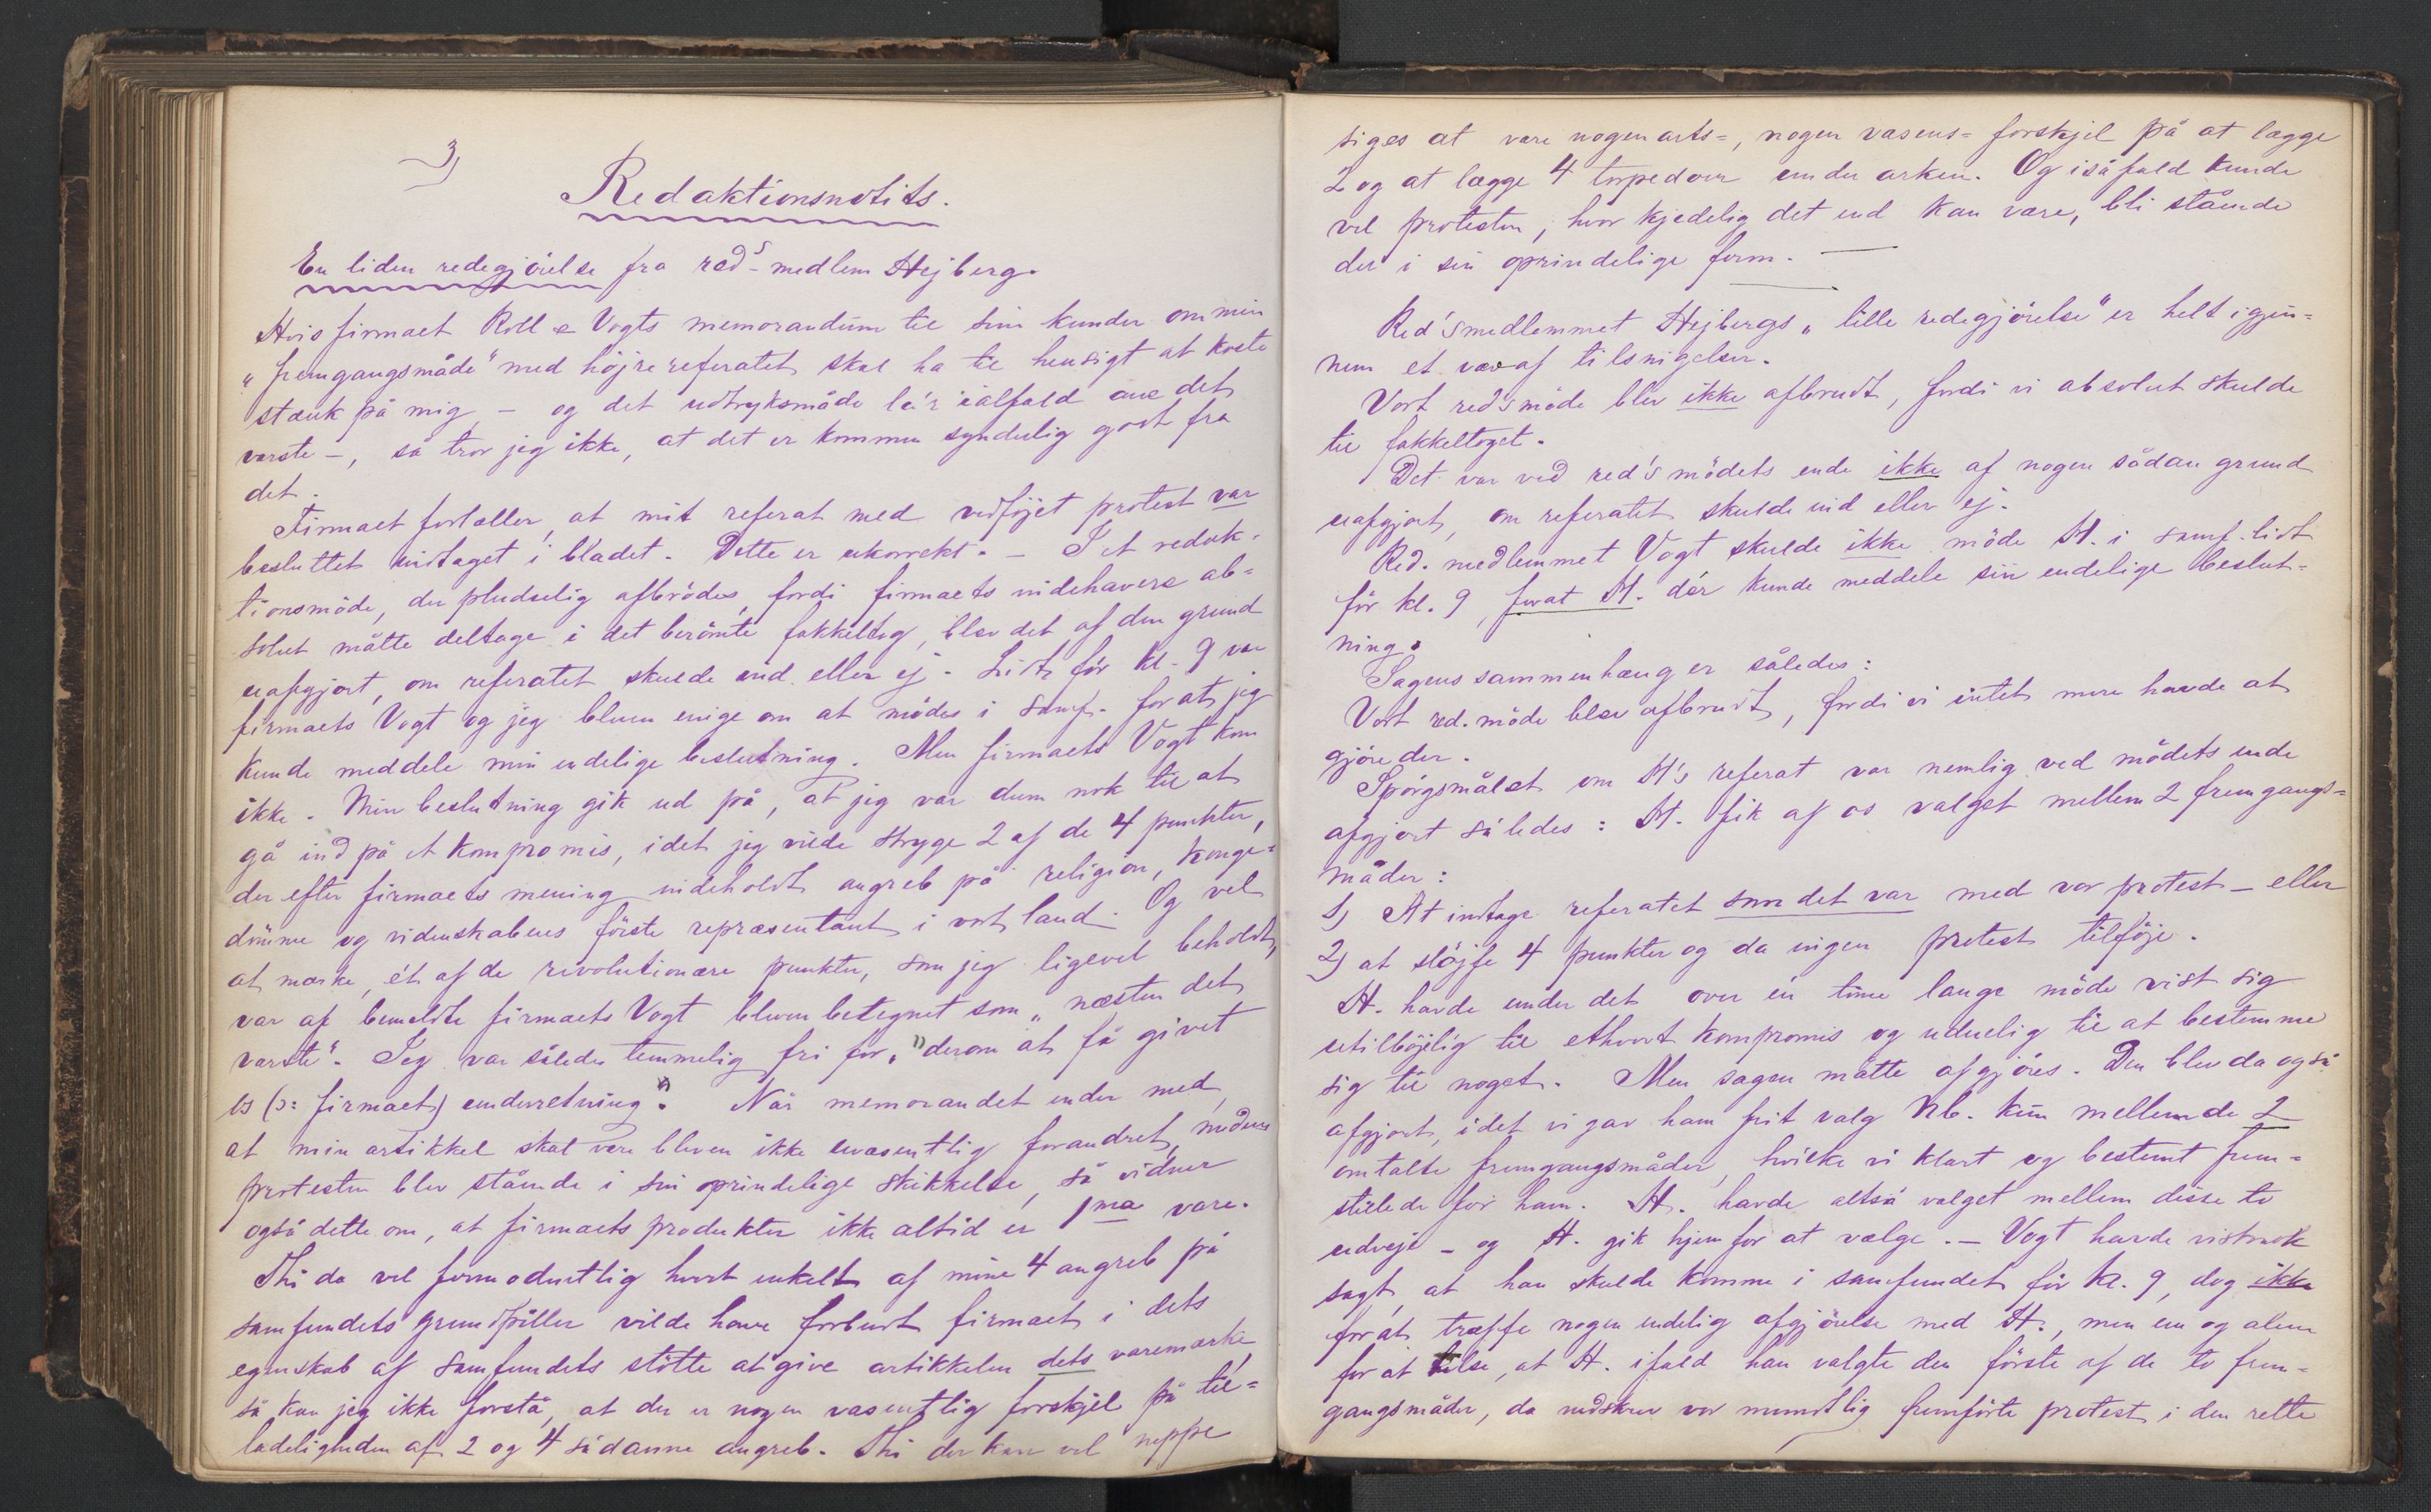 3)
Redaktionsnotits.
En liden redegjörelse fra reds-medlem Hejberg.
Hvis firmaet Roll & Vogts memorandum til sine kunder om min
"fremgangsmåde" med höjrereferatet skal ha til hensigt at kaste
stænk på mig – og det udtryksmåde la'r ialfald ane det
værste –, så tror jeg ikke, at det er kommen synderlig godt fra
det.
Firmaet fortæller, at mit referat med vedföjet protest var
besluttet indtaget i bladet. Dette er ukorrekt. – I et redak-
tionsmöde, der pludselig afbrödes, fordi firmaets indehavere ab-
solut måtte deltage i det berömte fakkeltog, blev det af den grund
uafgjort, om referatet skulde ind eller ej. Lidt för kl. 9 var
firmaets Vogt og jeg blevne enige om at mödes i Samf. forat jeg
kunde meddele min endelige beslutning. Men firmaets Vogt kom
ikke. Min beslutning gik ud på, at jeg var dum nok til at
gå ind på et kompromis, idet jeg vilde stryge 2 af de 4 punkter,
der efter firmaets mening indeholdt angreb på religion, konge-
dömme og videnskabens förste repræsentant i vort land. Og vel
at mærke, ét af de revolutionære punkter, som jeg ligevel beholdt,
var af bemeldte firmaets Vogt bleven betegnet som "næsten det
værste". Jeg var således temmelig fri for, "derom at få givet
os (ɔ: firmaet) underretning". Når memorandet ender med,
at min artikkel skal være bleven ikke uvæsentlig forandret, medens
protesten blev stående i sin oprindelige skikkelse, så vidner
også dette om, at firmaets produkter ikke altid er 1ma vare.
Thi da vel formodentlig hvert enkelt af mine 4 angreb på
samfundets grundpiller vilde have forbudt firmaet i dets
egenskab af samfundets stötte at give artikkelen dets varemærke,
så kan jeg ikke forstå, at der er nogen væsentlig forskjel på til-
ladeligheden af 2 og 4 sådanne angreb. Thi der kan vel neppe
siges at være nogen arts-, nogen væsens-forskjel på at lægge
2 og at lægge 4 torpedoer under arken. Og isåfald kunde
vel protesten, hvor kjedelig det end kan være, bli stående
der i sin oprindelige form. —
Red'smedlemmet Hejbergs "lille redegjörelse" er helt igjen-
nem et væv af tilsnigelser.
Vort redsmöde blev ikke afbrudt, fordi vi absolut skulde
til fakkeltoget.
Det var ved red'smödets ende ikke af nogen sådan grund
uafgjort, om referatet skulde ind eller ej.
Red. medlemmet Vogt skulde ikke möde H. i samf. lidt
för kl. 9, forat H. dér kunde meddele sin endelige beslut-
ning.
Sagens sammenhæng er således:
Vort red. möde blev afbrudt, fordi vi intet mere havde at
gjöre der.
Spörgsmålet om H's referat var nemlig ved mödets ende
afgjort således: H. fik af os valget mellem 2 fremgangs-
måder:
1) At indtage referatet som det var med vor protest – eller
2) at slöjfe 4 punkter og da ingen protest tilföje.
H. havde under det over én time lange möde vist sig
utilböjelig til ethvert kompromis og uduelig til at bestemme
sig til noget. Men sagen måtte afgjöres. Den blev da også
afgjort, idet vi gav ham frit valg Nb. kun mellem de 2
omtalte fremgangsmåder, hvilke vi klart og bestemt frem-
stillede for ham. H. havde altså valget mellem disse to
udveje – og H. gik hjem for at vælge. – Vogt havde vistnok
sagt, at han skulde komme i samfundet för kl. 9, dog ikke
forat træffe nogen endelig afgjörelse med H., men ene og alene
for at tilse, at H. ifald han valgte den förste af de to frem-
gangsmåder, da nedskrev vor mundtlig fremförte protest i den rette